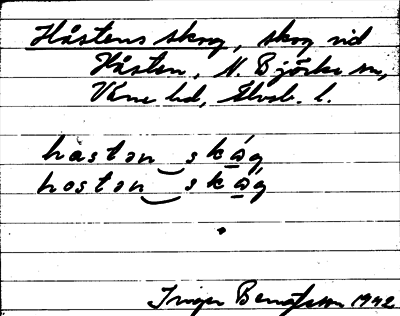 Håstens skog, skog vid
Håsten, N. Björke sn,
Väne hd, Älvsb. l.
hastən skǫ́g
hostən skǫ́g
Inger Bengtsson 1942